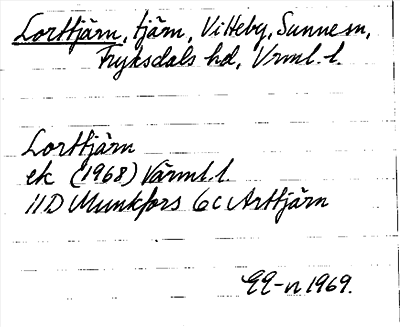 Lorttjärn, tjärn, Vitteby, Sunne sn,
Fryksdals hd, Vrml. l.
Lorttjärn
ek (1968) Värml. l.
11D Munkfors 6c Arttjärn
1969.